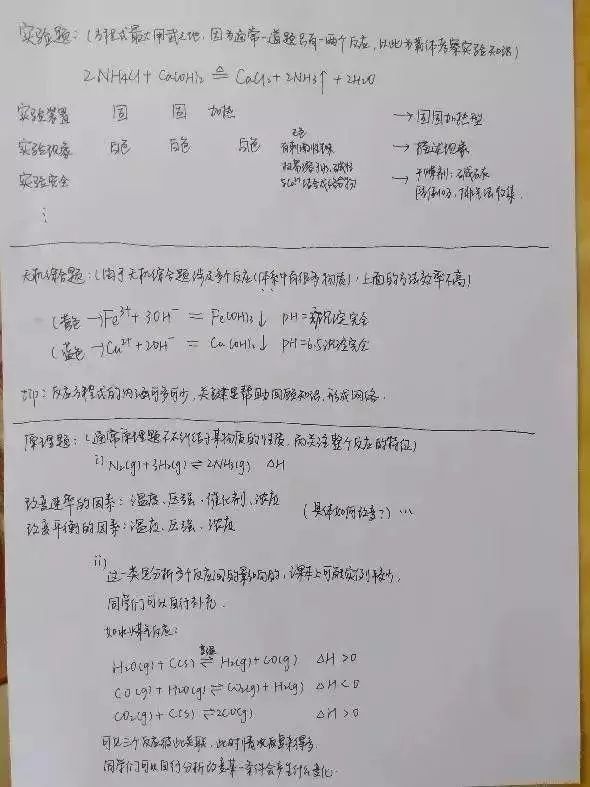 实验题：(方程式最大用武之地，因为通常一道题只有一两个反应，以此为载体考察实验知识)
2NH4Cl + Ca(OH)2 ≜ CaCl2 + 2NH3↑ + 2H2O
实验装置 固 固 加热 → 固固加热型
实验现象 白色 白色 白色 无色 有刺激性气味 → 描述现象
实验安全 极易溶于水、碱性 → 干燥剂：碱石灰
防倒吸，排空法收集
⋮
无机综合题：(由于无机综合题涉及多个反应(体系中有很多物质)，上面的方法效率不高)
(黄色→)Fe3+ + 3OH- = Fe(OH)3↓ pH= 沉淀完全
(蓝色→)Cu2+ + 2OH- = Cu(OH)2↓ pH=6.5沉淀完全
tip：反应方程式的内涵可多可少，关键是帮助回顾知识，形成网络.
原理题：(通常原理题不纠结于某物质的性质，而关注整个反应的特征)
i) N2(g)+3H2(g) ⇌ 2NH3(g) ΔH
改变速率的因素：温度、压强、催化剂、浓度
改变平衡的因素：温度、压强、浓度 (具体如何改变？) …
ii) 这一类是分析多个反应间的影响的，课本上可能实例较少，
同学们可以自行补充.
如水煤气反应：
H2O(g) + C(s) ⇌ H2(g) + CO(g) ΔH >0
CO(g) + H2O(g) ⇌ CO2(g) + H2(g) ΔH <0
CO2(g) + C(s) ⇌ 2CO(g) ΔH >0
可见三个反应彼此关联，此时情况复杂得多
同学们可以自行分析改变某一条件会产生什么变化.